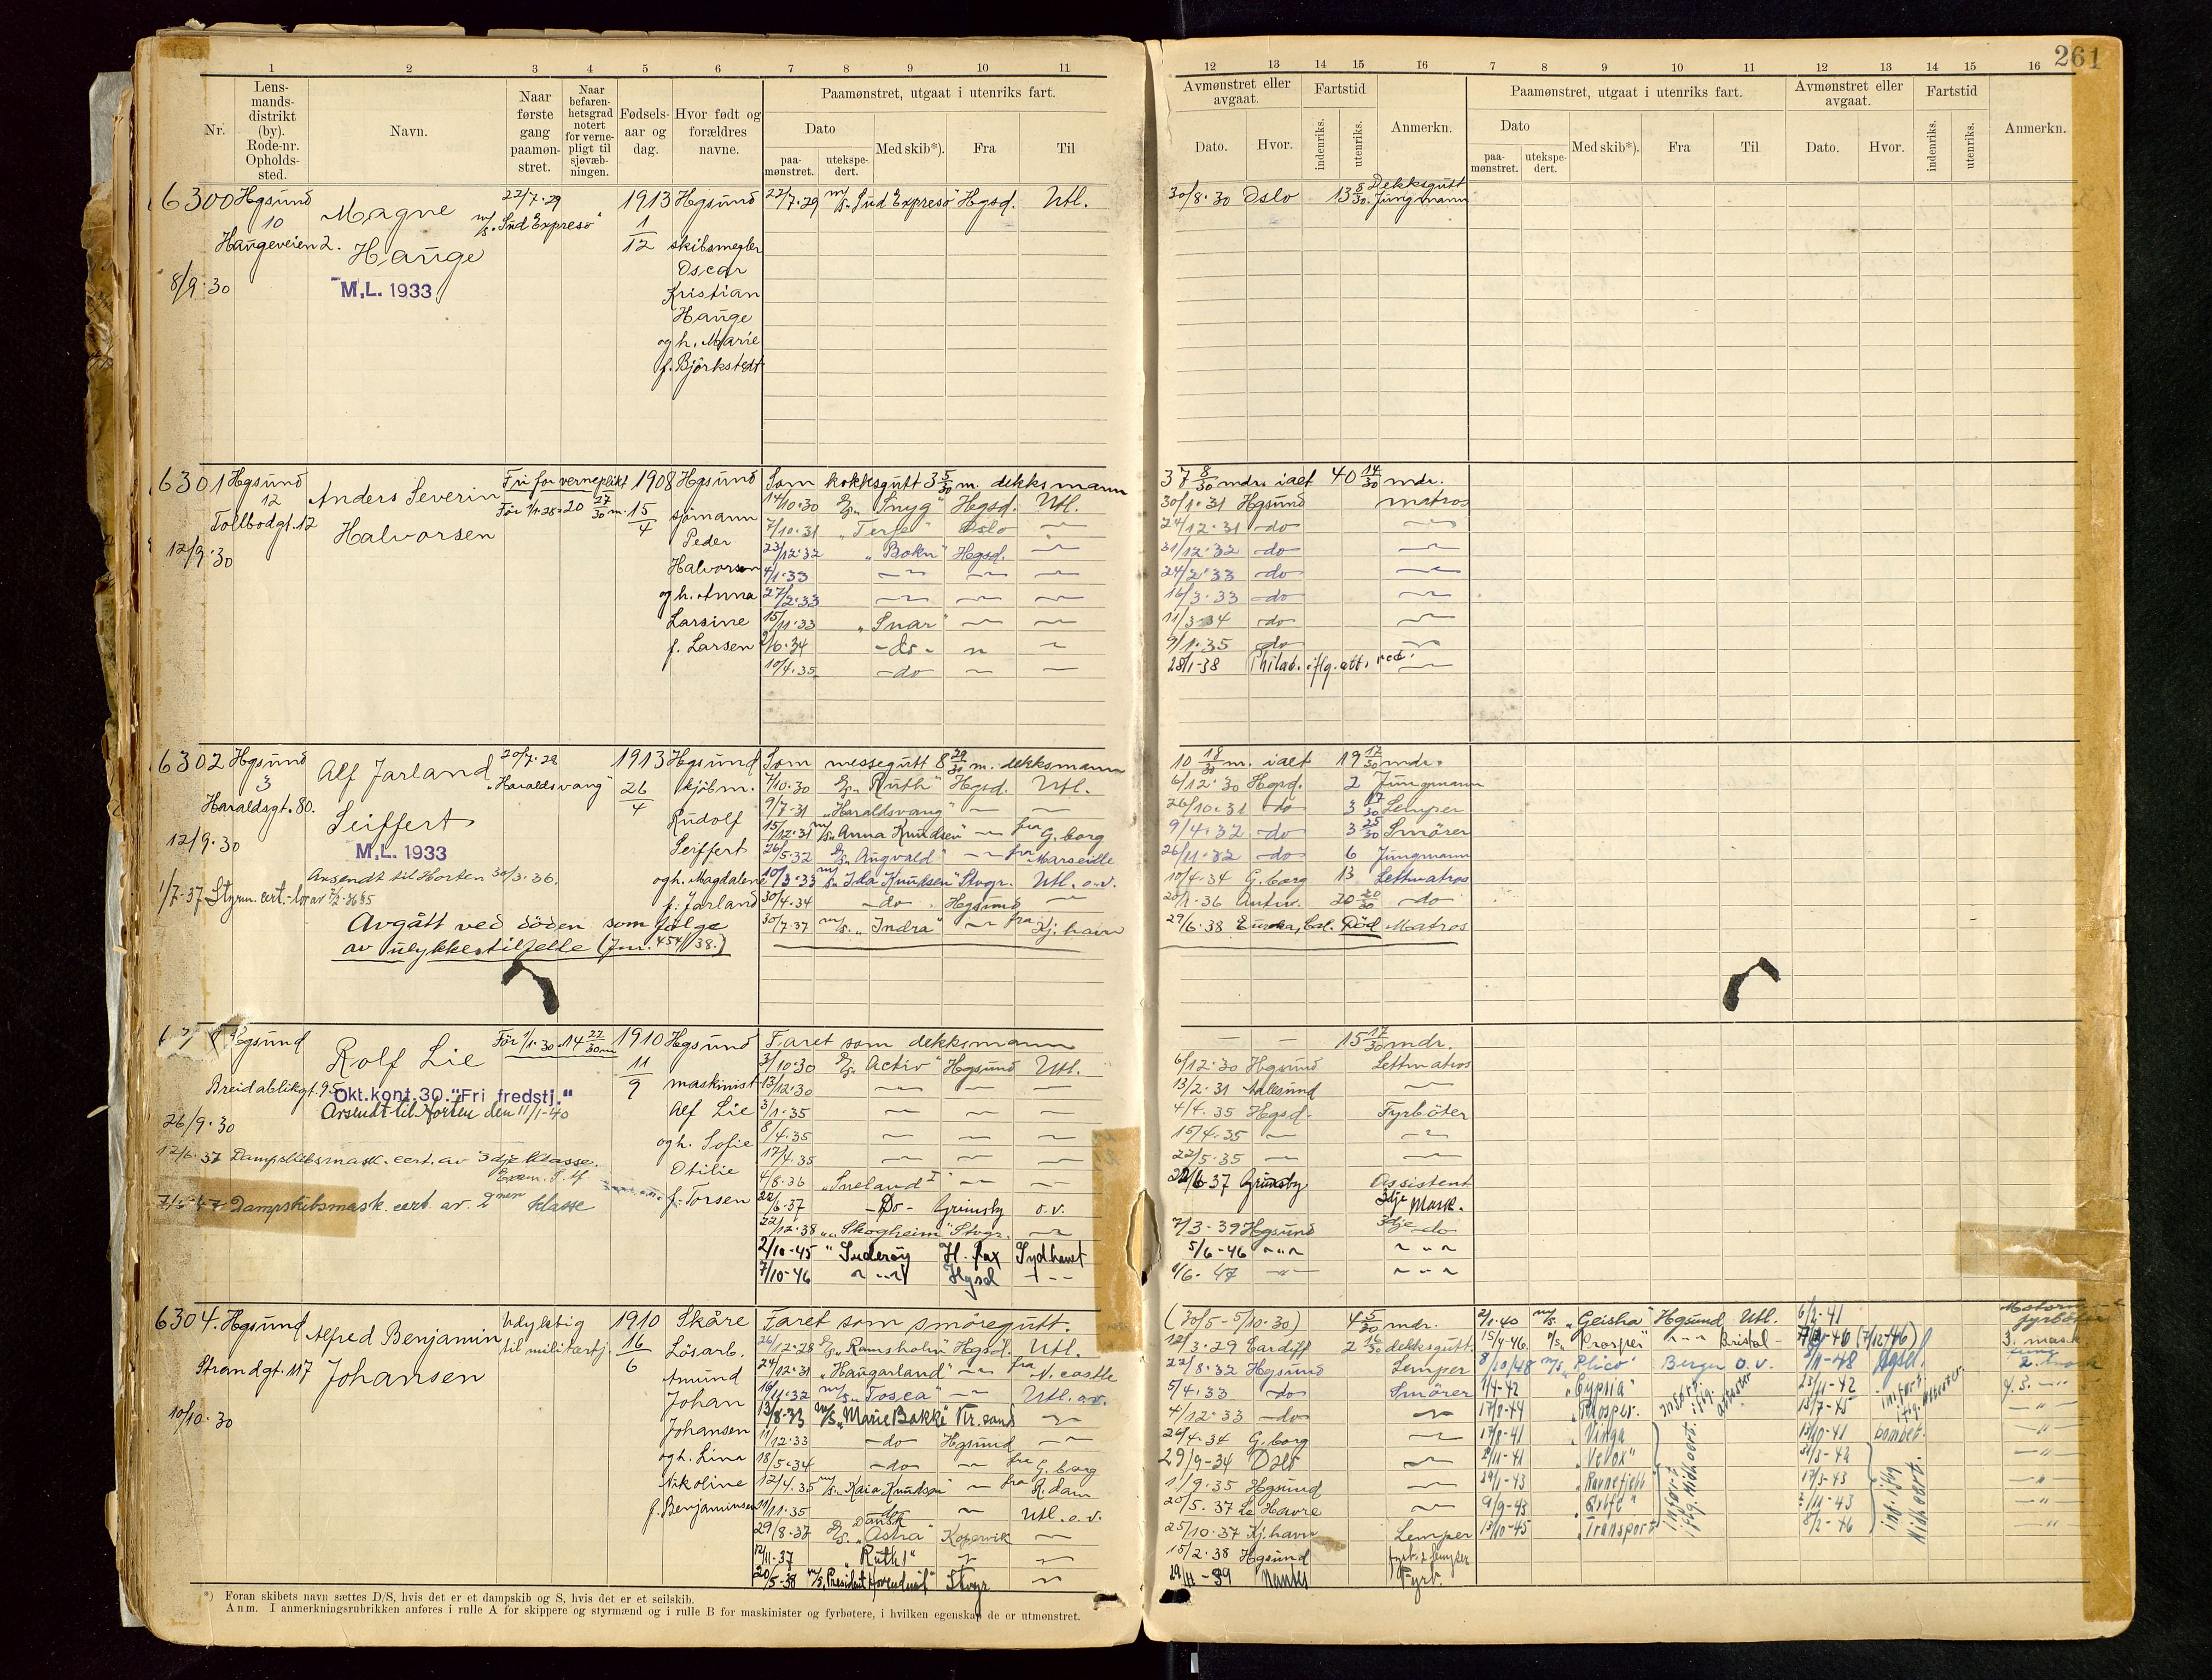 261
1 2 3 4 5 6 7 8 9 10 11
12 13 14 15 16 7 8 9 10 11 12 13 14 15 16
Nr.
Lens-
mands-
distrikt
(by).
Rode-nr.
Opholds-
sted.
Navn.
Naar
første
gang
paamøn-
stret.
Naar
befaren-
hetsgrad
notert
for verne-
pligt til
sjøvæb-
ningen.
Fødsels-
aar og
dag.
Hvor født og
forældres
navne.
Paamønstret, utgaat i utenriks fart.
Dato
paa-
mønstret.
utekspe-
dert.
Med skib*).
Fra
Til
Avmønstret eller
avgaat.
Dato.
Hvor.
Fartstid
indenriks.
utenriks.
Anmerkn.
Paamønstret, utgaat i utenriks fart.
Dato
paa-
mønstret.
utekspe-
dert.
Med skib*).
Fra
Til
Avmønstret eller
avgaat.
Dato.
Hvor.
Fartstid
indenriks.
utenriks.
Anmerkn.
6300 Hgsund
10
Haugeveien 2.
8/9.30
Magne
Hauge
M.L. 1933
22/7.29
m/s. "Sud Expreso"
1913
1
12
Hgsund
skibsmegler
Oscar
Kristian
Hauge
og h. Marie
f. Björkstedt
22/7.29 m/s. "Sud Expreso" Hgsd. Utl.
30/8.30 Oslo 13 8/30 Dekksgutt
Jungmann
6301 Hgsund
12
Tollbodgt. 12
12/9.30
Anders Severin
Halvorsen
Fri for verneplikt
1908
15
4
Hgsund
sjömann
Peder
Halvorsen
og h. Anna
Larsine
f. Larsen
Som kokksgutt 3 5/30 m. dekksmann
37 8/30 mdr. ialt 40 14/30 mdr.
14/10.30 "Snyg" Hgsd. Utl.
30/1.31 Hgsund matros
7/10.31 "Terje" Oslo
24/12.31 -do
23/12.32 "Bokn" Hgsd.
31/12.32 -do
4/1.33
24/2.33 -do
27/2.33
16/3.33 -do
15/11.33 "Snar"
11/3-34 -do
9/6.34 -do-
9/1.35 do
10/4.35 -do
28/1-38 Philad. iflg. att. red.
6302 Hgsund
3
Haraldsgt. 80.
12/9.30
Alf Jarland
Seiffert
M.L. 1933
Avsendt til Horten 30/3.36.
1/7-37 Styrm. cert.
Avgått ved döden som følge
av ulykkestilfelle (Jnr. 454/38.)
20/7.28
"Haraldsvang"
1913
26
4
Hgsund
kjöbm.
Rudolf
Seiffert
og h. Magdalene
f. Jarland
Som messegutt 8 29/30 m. dekksmann
10 18/30 m. ialt 19 17/30 mdr.
7/10.30 "Ruth" Hgsd. Utl.
6/12.30 Hgsd. 2 Jungmann
9/7-31 "Haraldsvang"
26/10.31 do 3 17/30 Lemper
15/12.31 m/s. "Anna Knudsen" fra G.borg
9/4.32 -do 3 25/30 Smörer
26/5.32 "Augvald" fra Marseille
26/11.32 -do 6 Jungmann
10/3.33 m/s. "Ida Knudsen" Stvgr. Utl. o.v.
10/4-34 G.borg 13 Lettmatros
30/4.34 -do. Hgsund
20/1-36 Antw. 20 20/30 -do
30/7.37 m/s. "Indra" fra Kj.havn
29/6.38 Eureka, Cal. Död Matros
Hgsund
Breidablikgt. 95
26/9.30
Rolf Lie
Okt.kont.30."Fri fredstj."
Avsendt til Horten den 11/1-40
12/6.37 Dampskibsmask. cert. av 3dje klasse.
Dampskibsmask. cert. av. 2nen klasse
För 1/1.30. 14 22/30 m
1910
11
9
Hgsund
maskinist
Alf Lie
og h. Sofie
Otilie
f. Torsen
Faret som dekksmann
15 17/30 mdr.
3/10.30 "Activ" Hgsund Utl.
6/12.30 Hgsund Lettmatros
13/12.30
13/2.31 Aalesund
3/1.35
4/4.35 Hgsd. Fyrböter
8/4.35
15/4.35
17/4.35
22/5.35
4/8.36 "Sneland I"
22/6-37 Grimsby Assistent
22/6-37 -Do- Grimsby o.v.
3dje Mask.
22/12.38 "Skogheim" Stvgr.
7/3-39 Hgsund 3dje do
2/10-45 "Suderöy" H. Pax Sydhavet
5/6-46
7/10-46 Hgsd
6/6-47
6304. Hgsund
Strandgt. 117
10/10.30
Alfred Benjamin
Johansen
Udyktig
til militærtj.
1910
16
6
Skåre
Lösarb.
Amund
Johan
Johansen
og h. Lina
Nikoline
f. Benjaminsen
Faret som smöregutt.
(30/5-5/10.30) 4 5/30 mdr.
26/12.28 "Ramsholm" Hgsd. Utl.
12/3.29 Cardiff 2 16/30 dekksgutt
24/12.31 "Haugarland" fra N.castle
22/8.32 Hgsund Lemper
16/11.32 m/s. "Tosca" Utl. o.v.
5/4.33 -do Smörer
13/8-33 m/s. "Marie Bakke" Kr.sand
4/12.33 -do
11/12.33 -do Hgsund
26/4.34 G.borg
18/5.34 -do fra G.borg
29/9-34 Oslo
12/4.35 m/s. "Kaia Knudsen" fra R.dam
1/9.35 Hgsund
11/11.35 Utl. o.v.
20/5.37 Le Havre
Dansk
29/8.37 "Astra" Kopervik
25/10.37 Kj.havn Lemper
12/11-37 "Ruth I"
15/2.38 Hgsund
20/5-38 m/s. Stvgr
-39 Nantes Fyrb.
2/1-40 m/s. "Geisha" Hgsund Utl. 6/2-41
15/4-46. "Prosper" Bristol (7/12-46) 3. mask
8/10/48 m/s "Plico" Bergen o.v. -48 Hgsd.
1/4-42 "Gypsia" 23/11-42
17/8-44 "Prosper. 15/7-45
17/8-41 "Vinga 15/10-41 bombet.
"Vevox"
29/1-43 "Ravnefjell"
9/9-43
13/10-45 "Transport" 8/2-46
*) Foran skibets navn sættes D/S, hvis det er et dampskib og S, hvis det er et seilskib.
Anm. I anmerkningsrubrikken anføres i rulle A for skippere og styrmænd og i rulle B for maskinister og fyrbøtere, i hvilken egenskap de er utmønstret.